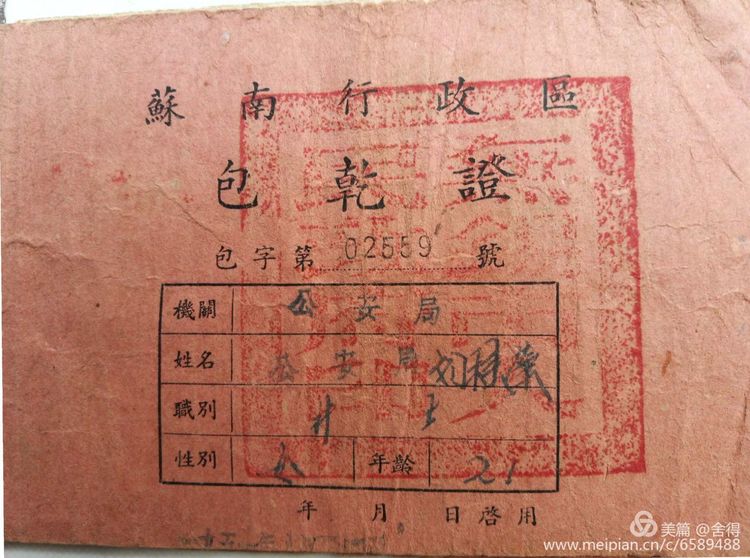 蘇南行政區
包乾證
包字第02559號
機關 公安局
姓名 公安局
職別
性別 年齡 21
年 月 日啓用
美篇 @舍得
www.meipian.cn/c/6589488